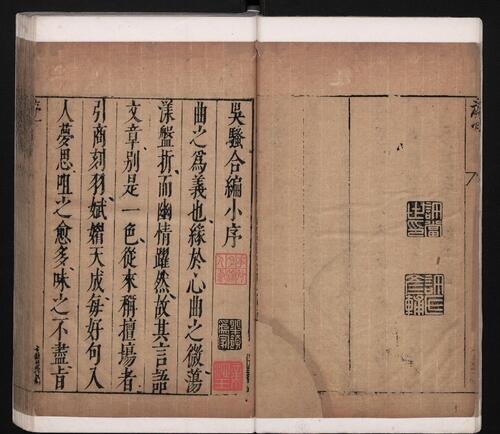 吳騷合編小序
曲之爲義也緣於心曲之微蕩
漾盤折而幽情躍然故其言語
文章別是一色從來稱擅場者
引商刻羽斌媚天成每好句入
人夢思咀之愈多味之不盡旨